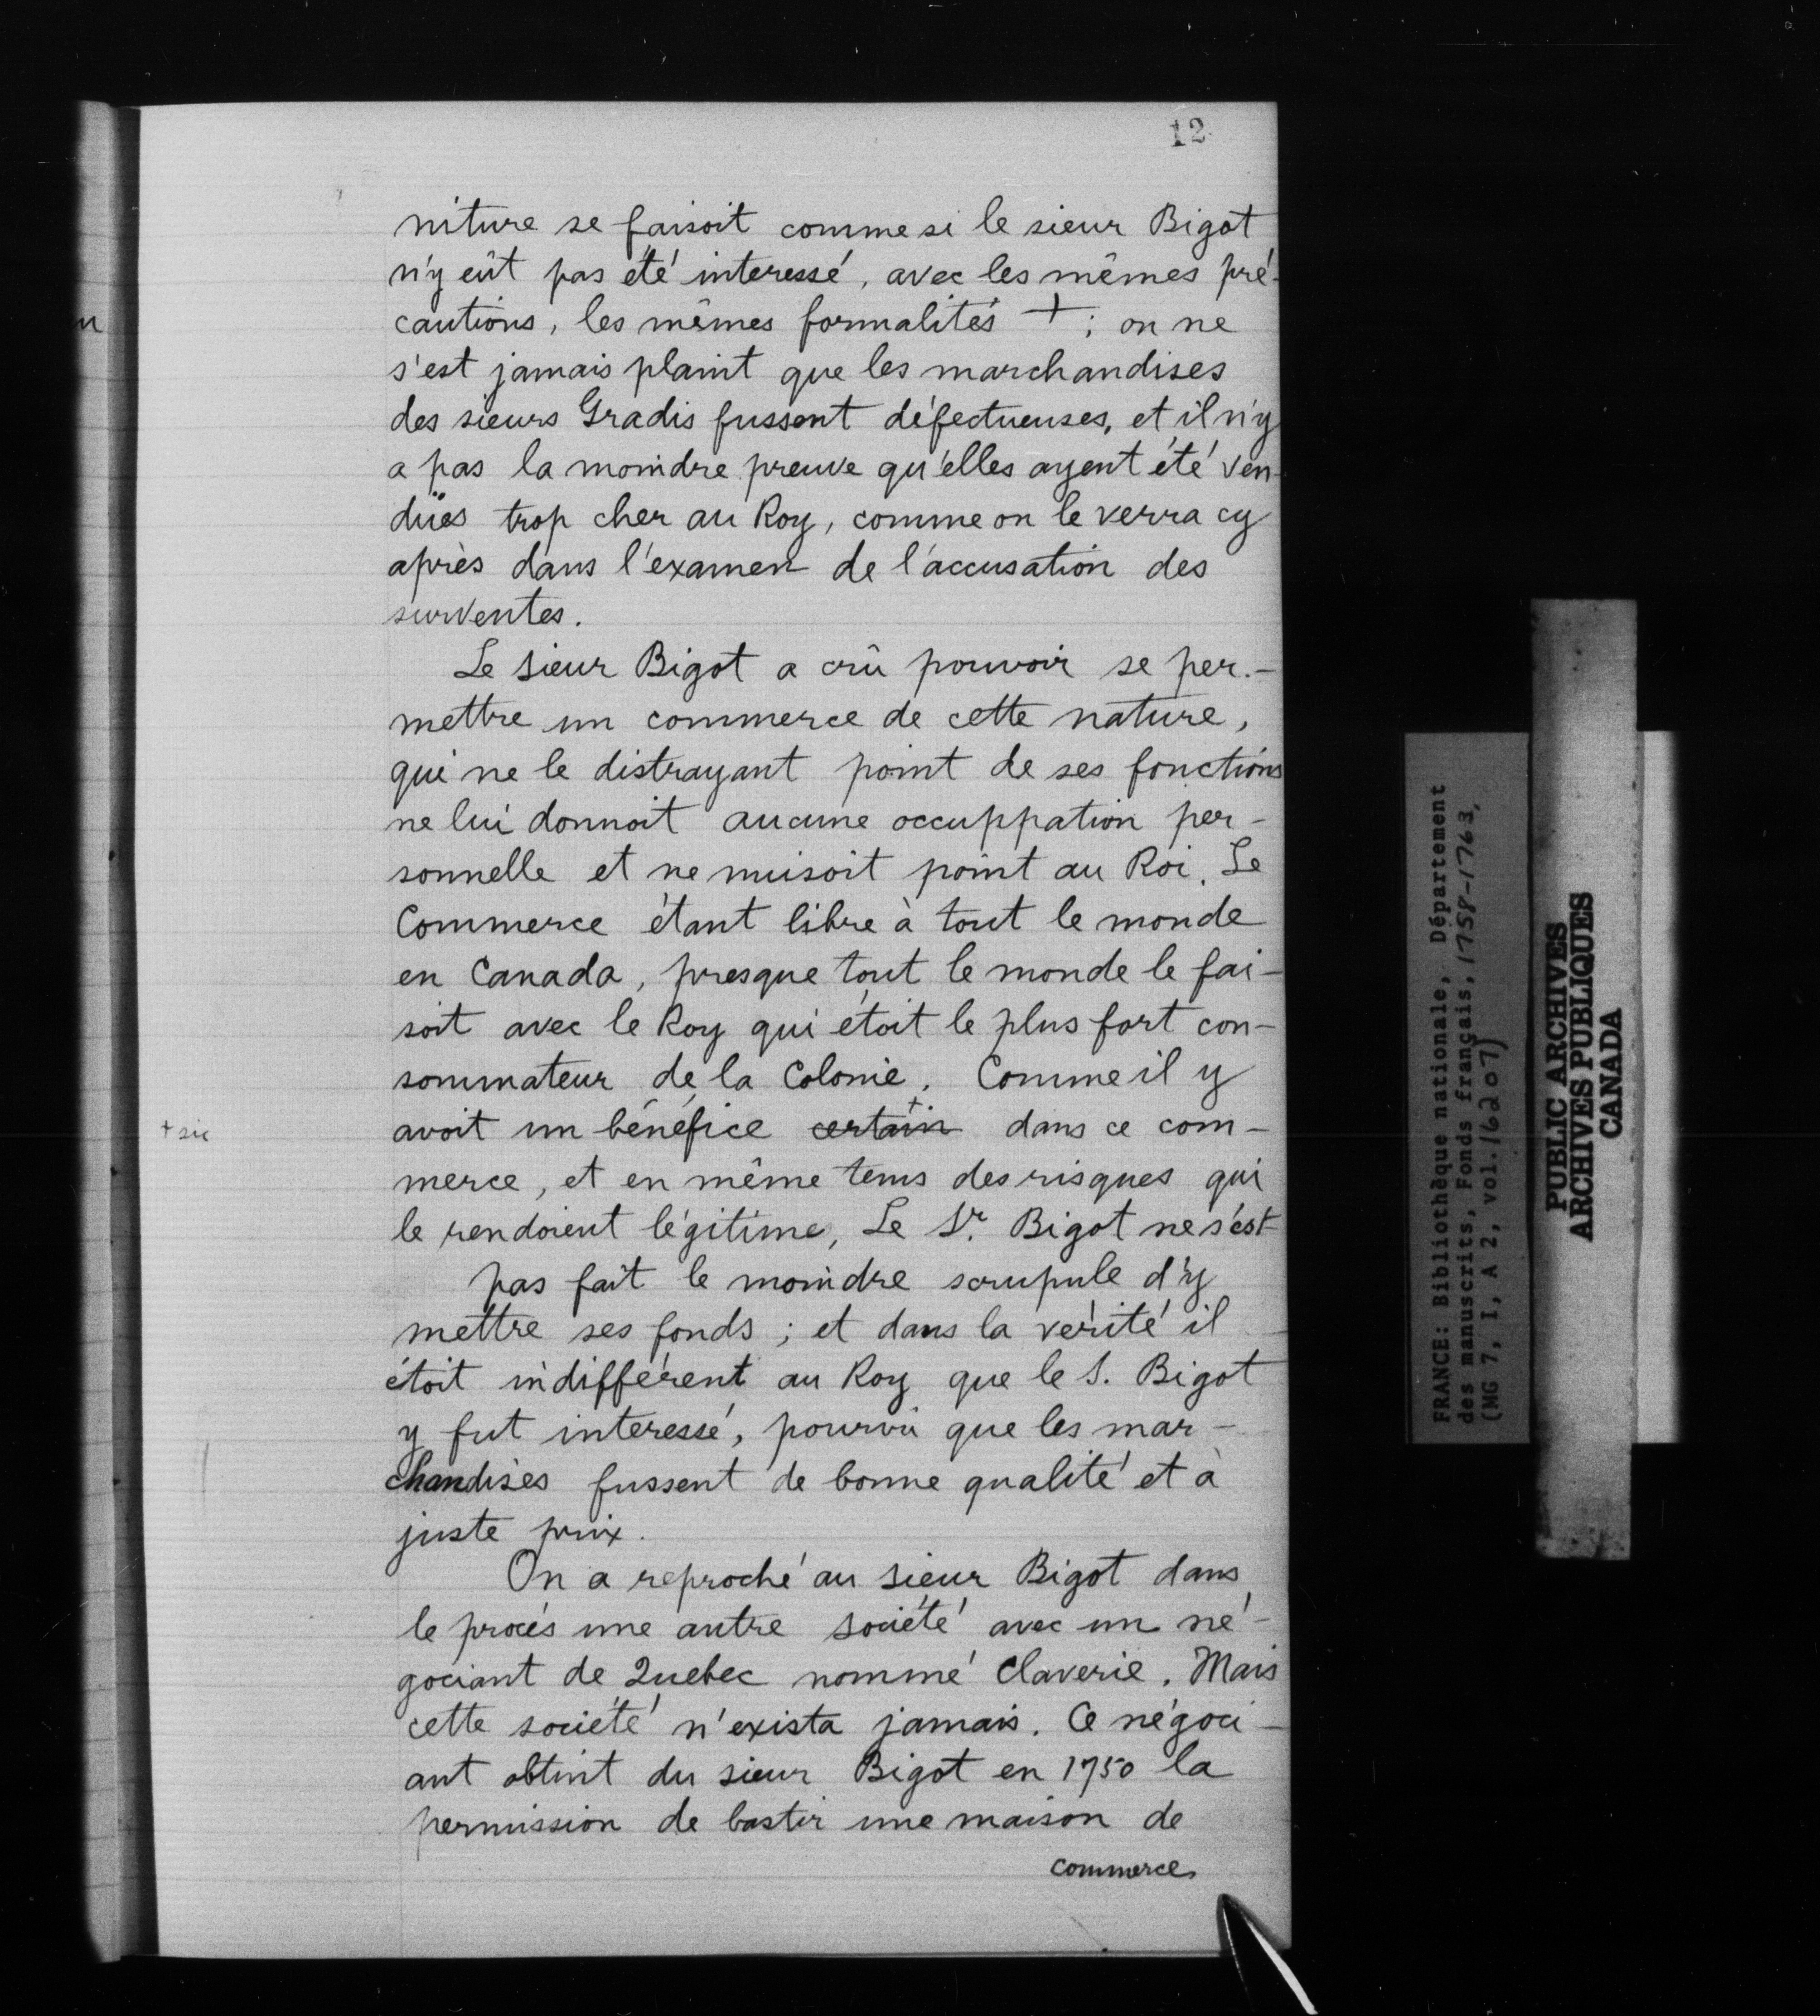 12
niture se faisoit comme si le sieur Bigot
n'y eût pas été interessé, avec les mêmes pré-
cautions, les mêmes formalités + ; on ne
s'est jamais plaint que les marchandises
des sieurs Gradis fussent défectueuses, et il n'y
a pas la moindre preuve qu'elles ayent été ven-
düës trop cher au Roy, comme on le verra cy
après dans l'examen de l'accusation des
surventes.
Le sieur Bigot a crû pouvoir se per-
mettre un commerce de cette nature,
qui ne le distrayant point de ses fonctions
ne lui donnoit aucune occuppation per-
sonnelle et ne nuisoit point au Roi. Le
Commerce étant libre à tout le monde
en Canada, presque tout le monde le fai-
soit avec le Roy qui étoit le plus fort con-
sommateur de la Colonie. Comme il y
+ sic
avoit un bénéfice certain + dans ce com-
merce, et en même tems des risques qui
le rendoient légitime, Le Sr. Bigot ne s'est
pas fait le moindre scrupule d'y
mettre ses fonds ; et dans la vérité il
étoit indifférent au Roy que le S. Bigot
y fut interessé, pourvû que les mar-
chandises fussent de bonne qualité et à
juste prix.
On a reproché au sieur Bigot dans
le procés une autre société avec un né-
gociant de Quebec nommé Claverie. Mais
cette société n'exista jamais. Ce négoci-
ant obtint du sieur Bigot en 1750 la
permission de bastir une maison de
commerce
FRANCE: Bibliothèque nationale, Département
des manuscrits, Fonds français, 1758-1763,
(MG 7, I, A 2, vol. 16207)
PUBLIC ARCHIVES
ARCHIVES PUBLIQUES
CANADA